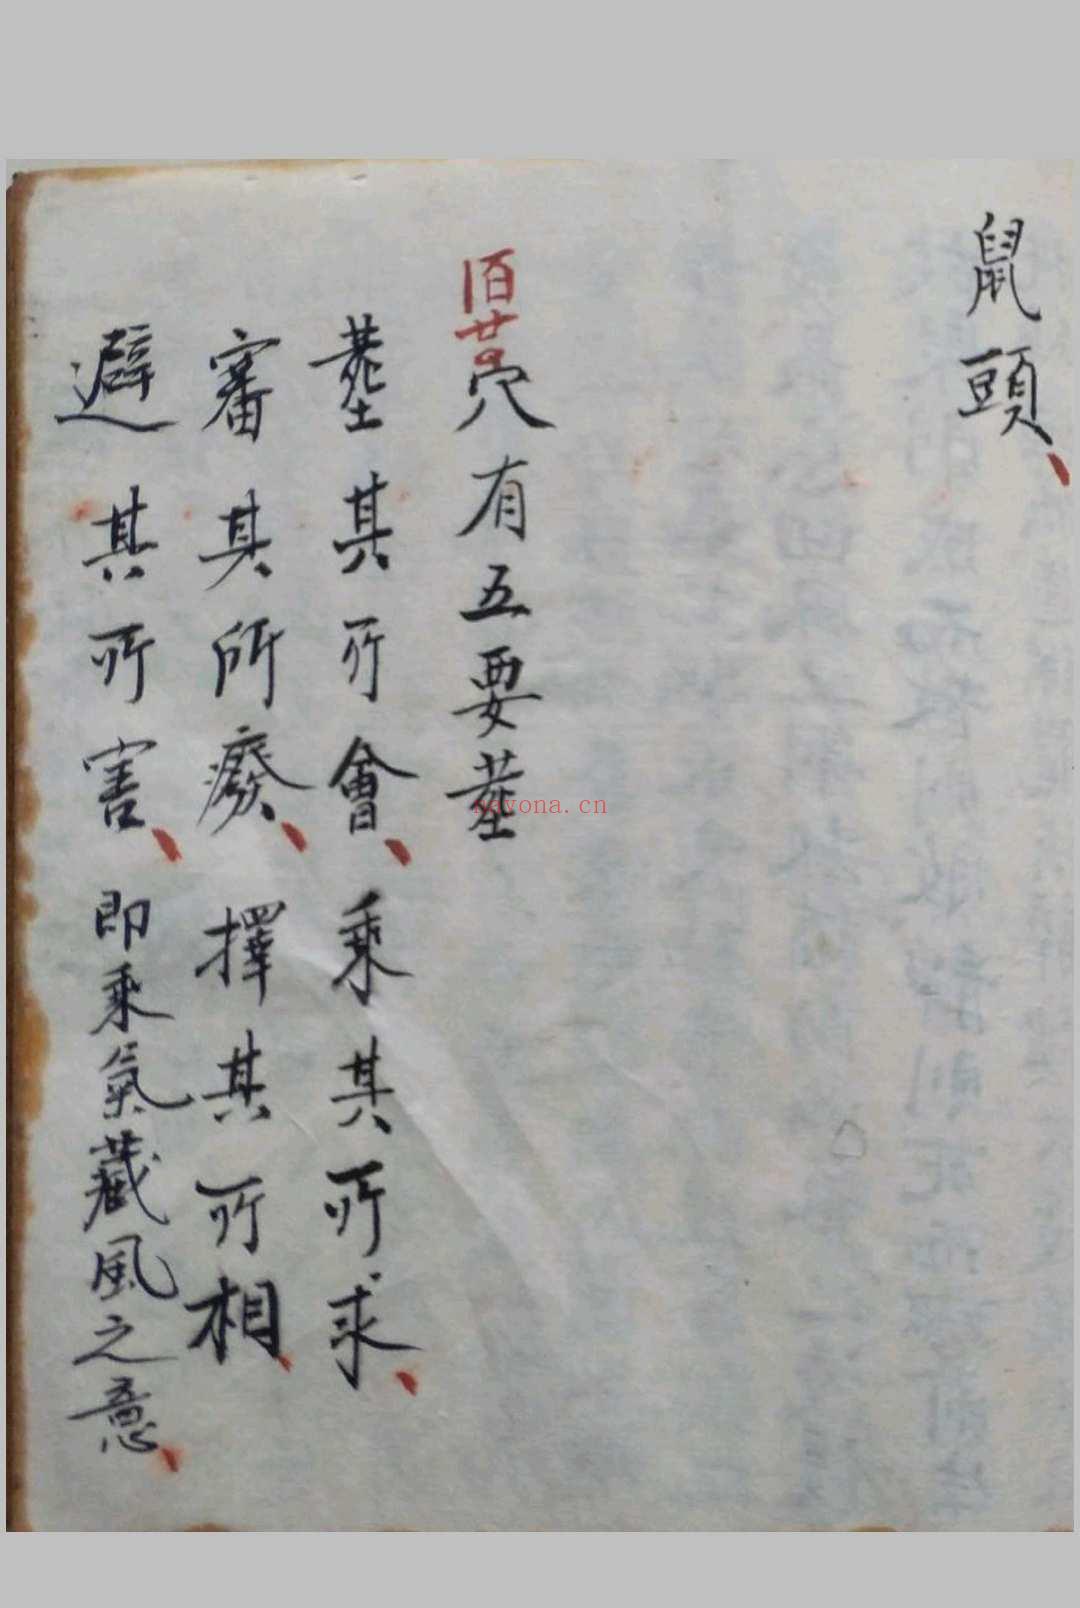 鼠頭、
佰廿穴有五要塟
塟其所會、乘其所求、
審其所廢、擇其所相、
避其所害、即乘氣藏風之意、
nayona.cn